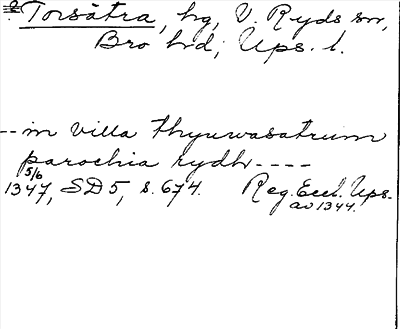 Torsåtra, hg, V. Ryds sn,
Bro hd, Ups. l.
--in villa thyuwasatrum
parochia rydh----
5/6
1347, SD 5, s. 674. Reg. Eccl. Ups.
av 1344.